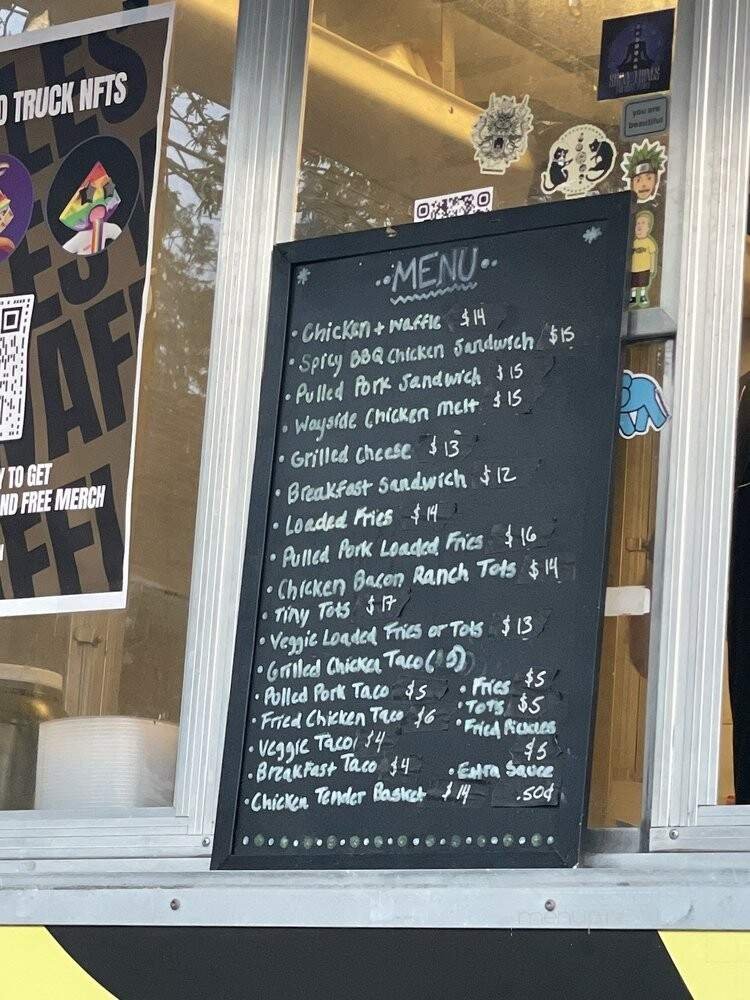 D TRUCK NFTS
Y TO GET
ND FREE MERCH
you are
beautiful
MENU
• Chicken + Waffle $14
• Spicy BBQ Chicken Sandwich $15
• Pulled Pork Sandwich $15
• Wayside Chicken Melt $15
• Grilled Cheese $13
• Breakfast Sandwich $12
• Loaded Fries $14
• Pulled Pork Loaded Fries $16
• Chicken Bacon Ranch Tots $14
• Tiny Tots $17
• Veggie Loaded Fries or Tots $13
• Grilled Chicken Taco ($5)
• Pulled Pork Taco $5
• Fried Chicken Taco $6
• Veggie Taco $4
• Breakfast Taco $4
• Chicken Tender Basket $14
• Fries $5
• Tots $5
• Fried Pickles
$5
• Extra Sauce
.50¢